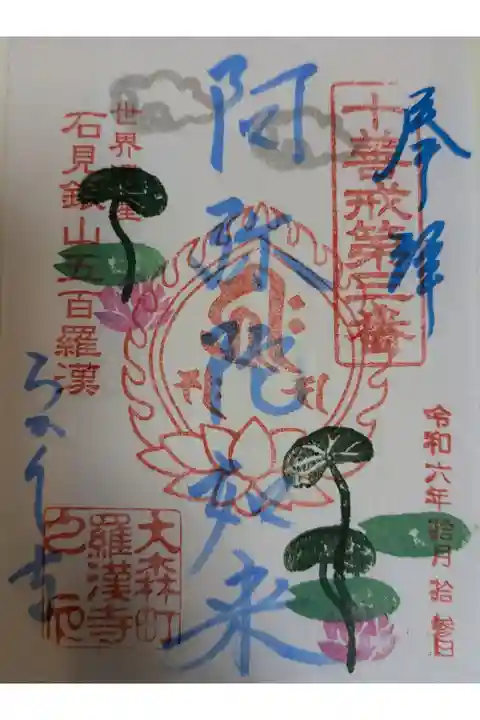 奉拝
十善戒第三番
令和六年拾月拾参日
阿弥陀如来
世界遺産
石見銀山五百羅漢
らかん寺
大森町
羅漢寺
之印